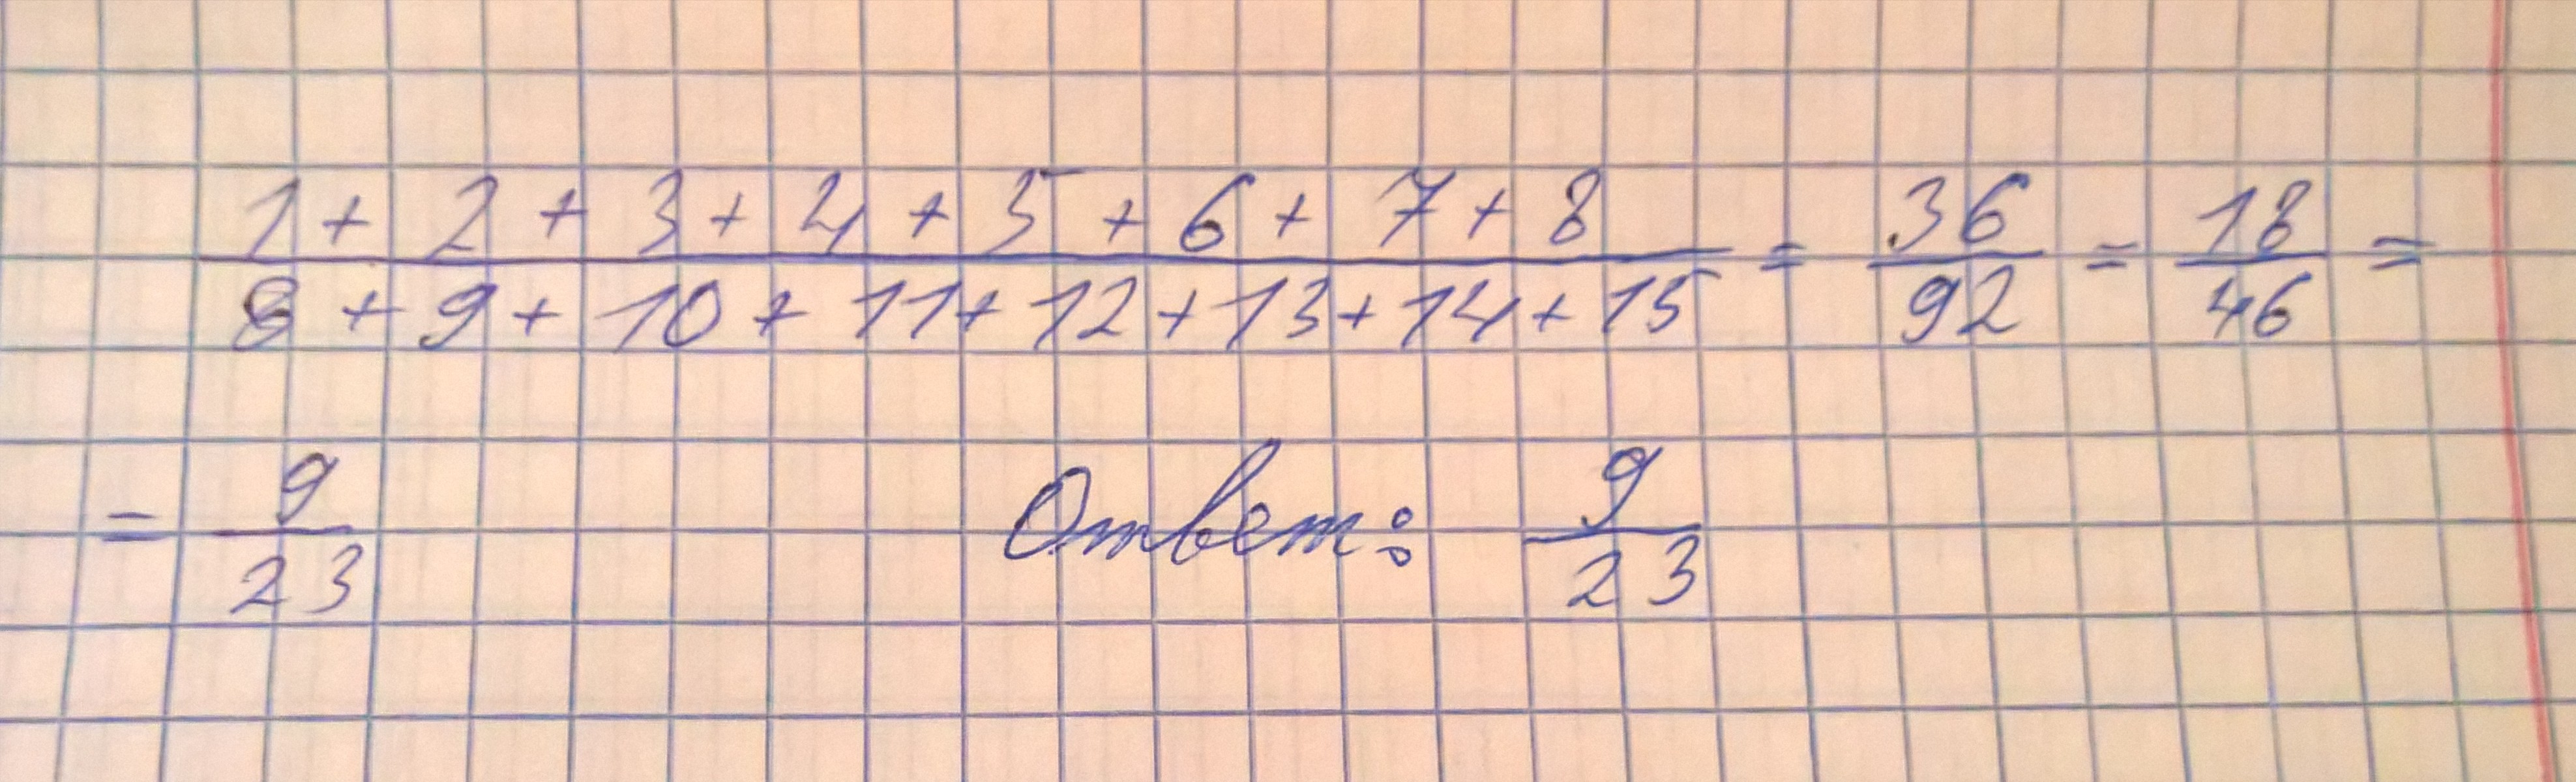 1 + 2 + 3 + 4 + 5 + 6 + 7 + 8
8 + 9 + 10 + 11 + 12 + 13 + 14 + 15 = 36/92 = 18/46 =
= 9/23 Ответ: 9/23